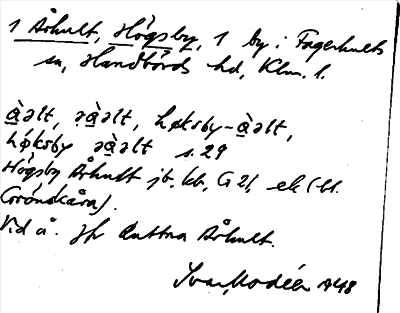 1 Åhult, Högsby, 1 by i Fagerhults
sn, Handbörds hd, Klm. l.
à̱əlt, əà̱əlt, høksby-à̱əlt,
høksby əà̱əlt s. 29
Högsby Åhult jb, kb, G 21, ek (bl.
Gröndkåra).
Vid å. Jfr Ruttna Åhult.
Ivar Modéer 1948